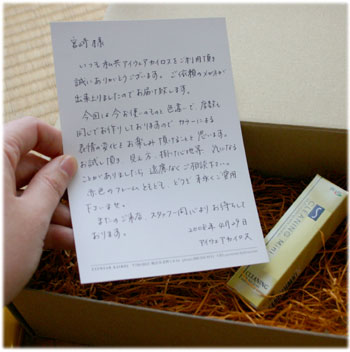 宮崎 様
いつも私共アイウェアカイロスをご利用頂き
誠にありがとうございます。ご依頼のメガネが
出来上りましたのでお届け致します。
今回は今お使いのものと色違いで、度数も
同じでお作りしておりますので カラーによる
表情の変化をお楽しみ頂けることと思います。
お試し頂き、見え方、掛けた心地等、気になる
ことがありましたら遠慮なくご相談下さい。
赤色のフレームともども、どうぞ末永くご愛用
下さいませ。
またのご来店、スタッフ一同心よりお待ちして
おります。
アイウェアカイロス
EYEWEAR KAIROS
CLEANING
CLEANING